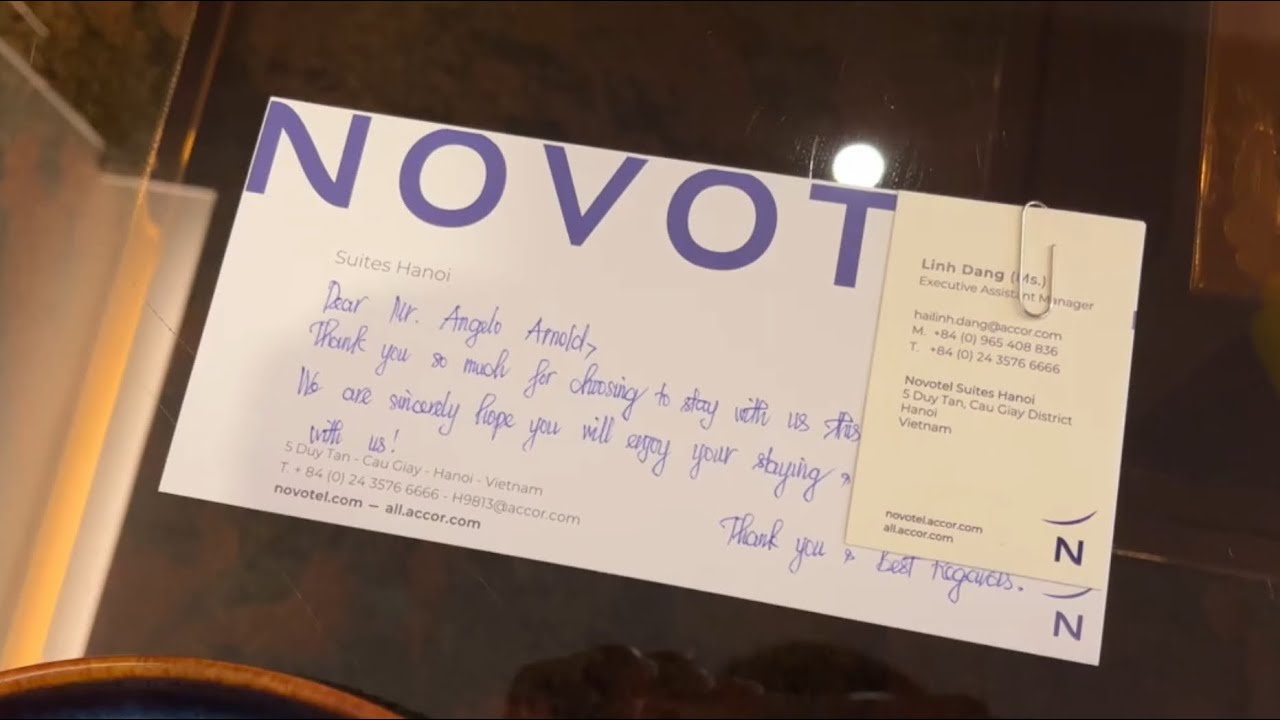 NOVOT
Suites Hanoi
Dear Mr. Angelo Arnold,
Thank you so much for choosing to stay with us this
We are sincerely hope you will enjoy your staying &
with us!
5 Duy Tan - Cau Giay - Hanoi - Vietnam
T. + 84 (0) 24 3576 6666 - H9813@accor.com
novotel.com — all.accor.com
Thank you & Best regards.
N
Linh Dang (Ms.)
Executive Assistant Manager
hailinh.dang@accor.com
M. +84 (0) 965 408 836
T. +84 (0) 24 3576 6666
Novotel Suites Hanoi
5 Duy Tan, Cau Giay District
Hanoi
Vietnam
novotel.accor.com
all.accor.com
N